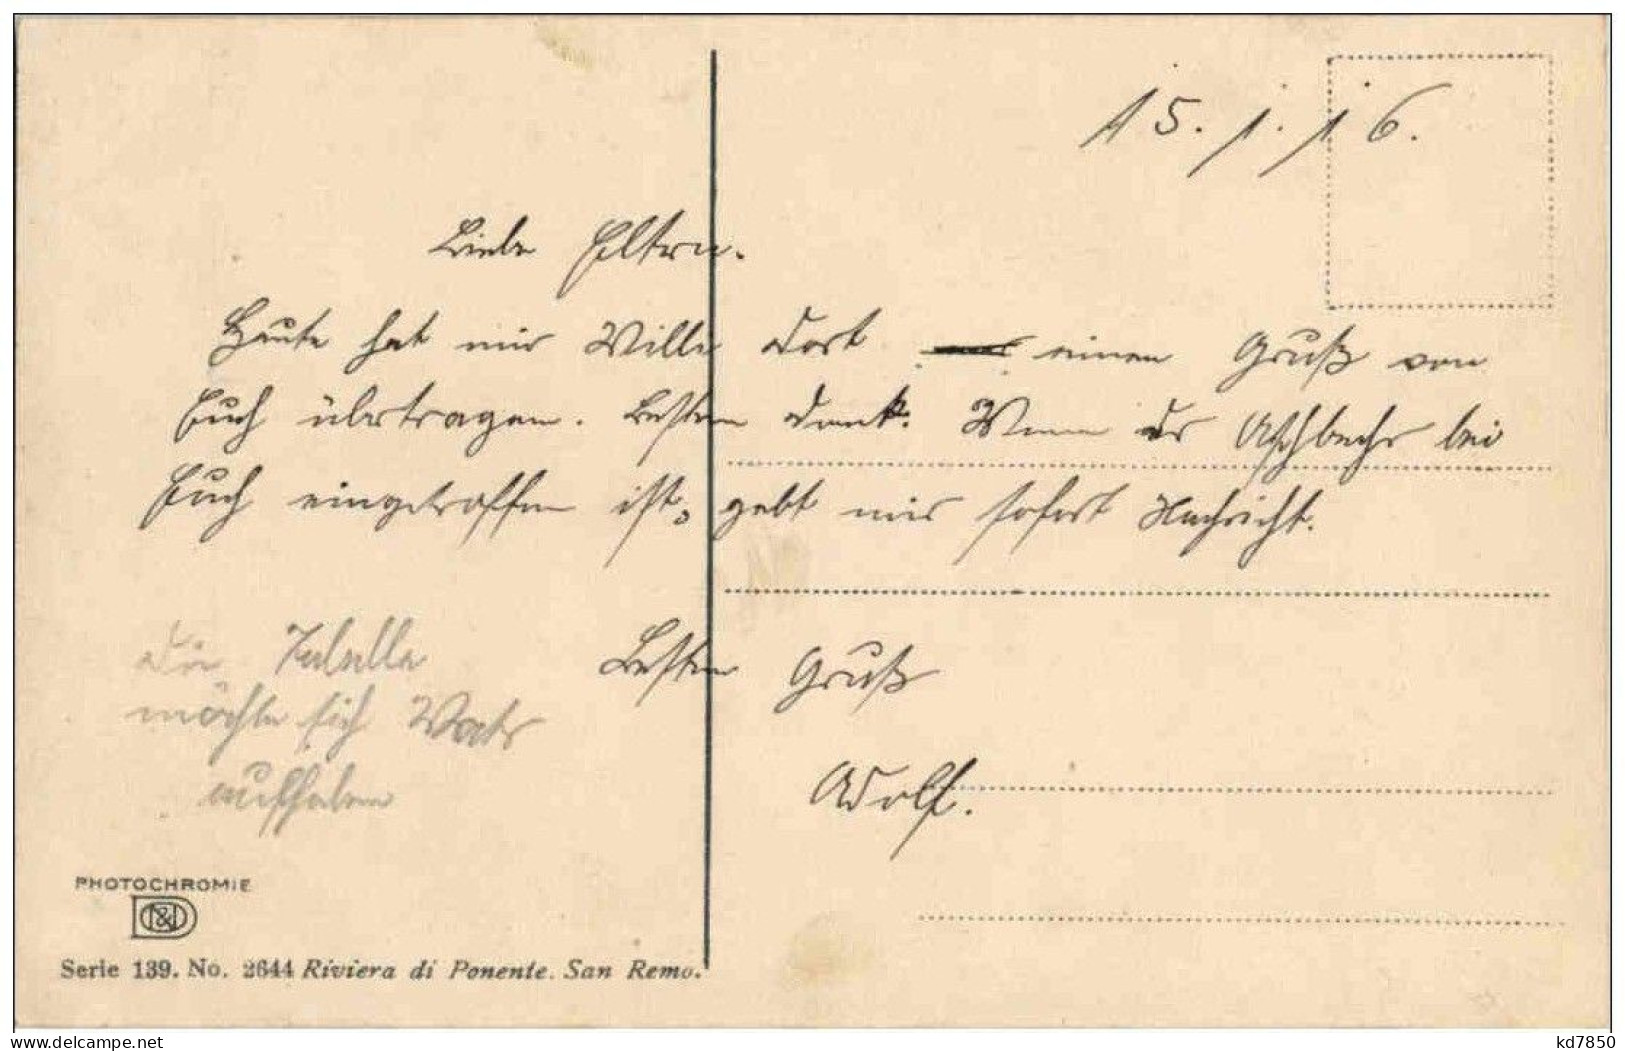 15.1.16.
Liebe Eltern.
Heute hat mir Willi Dort einen Gruß von
Euch übertragen. Besten Dank. Wenn der bei
Euch eingetroffen ist, gebt mir sofort Nachricht.
Besten Gruß
Adolf.
Die
möchte sich
aufheben
PHOTOCHROMIE
Serie 139. No. 2644 Riviera di Ponente. San Remo.
www.delcampe.net
kd7850